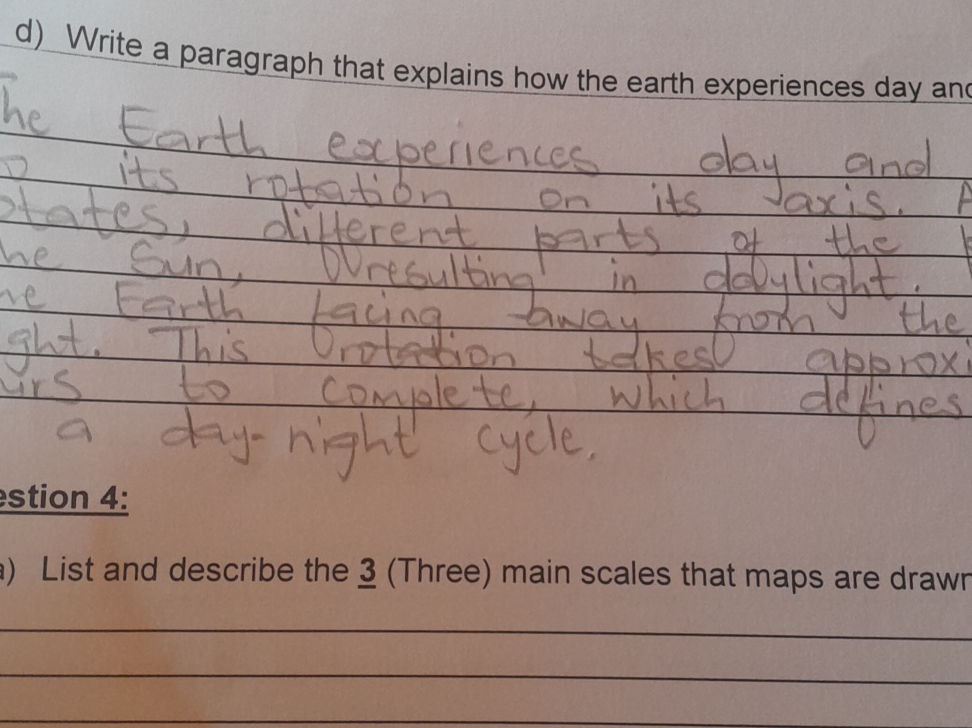 d) Write a paragraph that explains how the earth experiences day and
The Earth experiences day and
its rotation on its axis. A
otates, different parts of the
he Sun, resulting in daylight.
he Earth facing away from the
ght. This rotation takes approxi
urs to complete, which defines
a day-night cycle.
estion 4:
a) List and describe the 3 (Three) main scales that maps are drawn